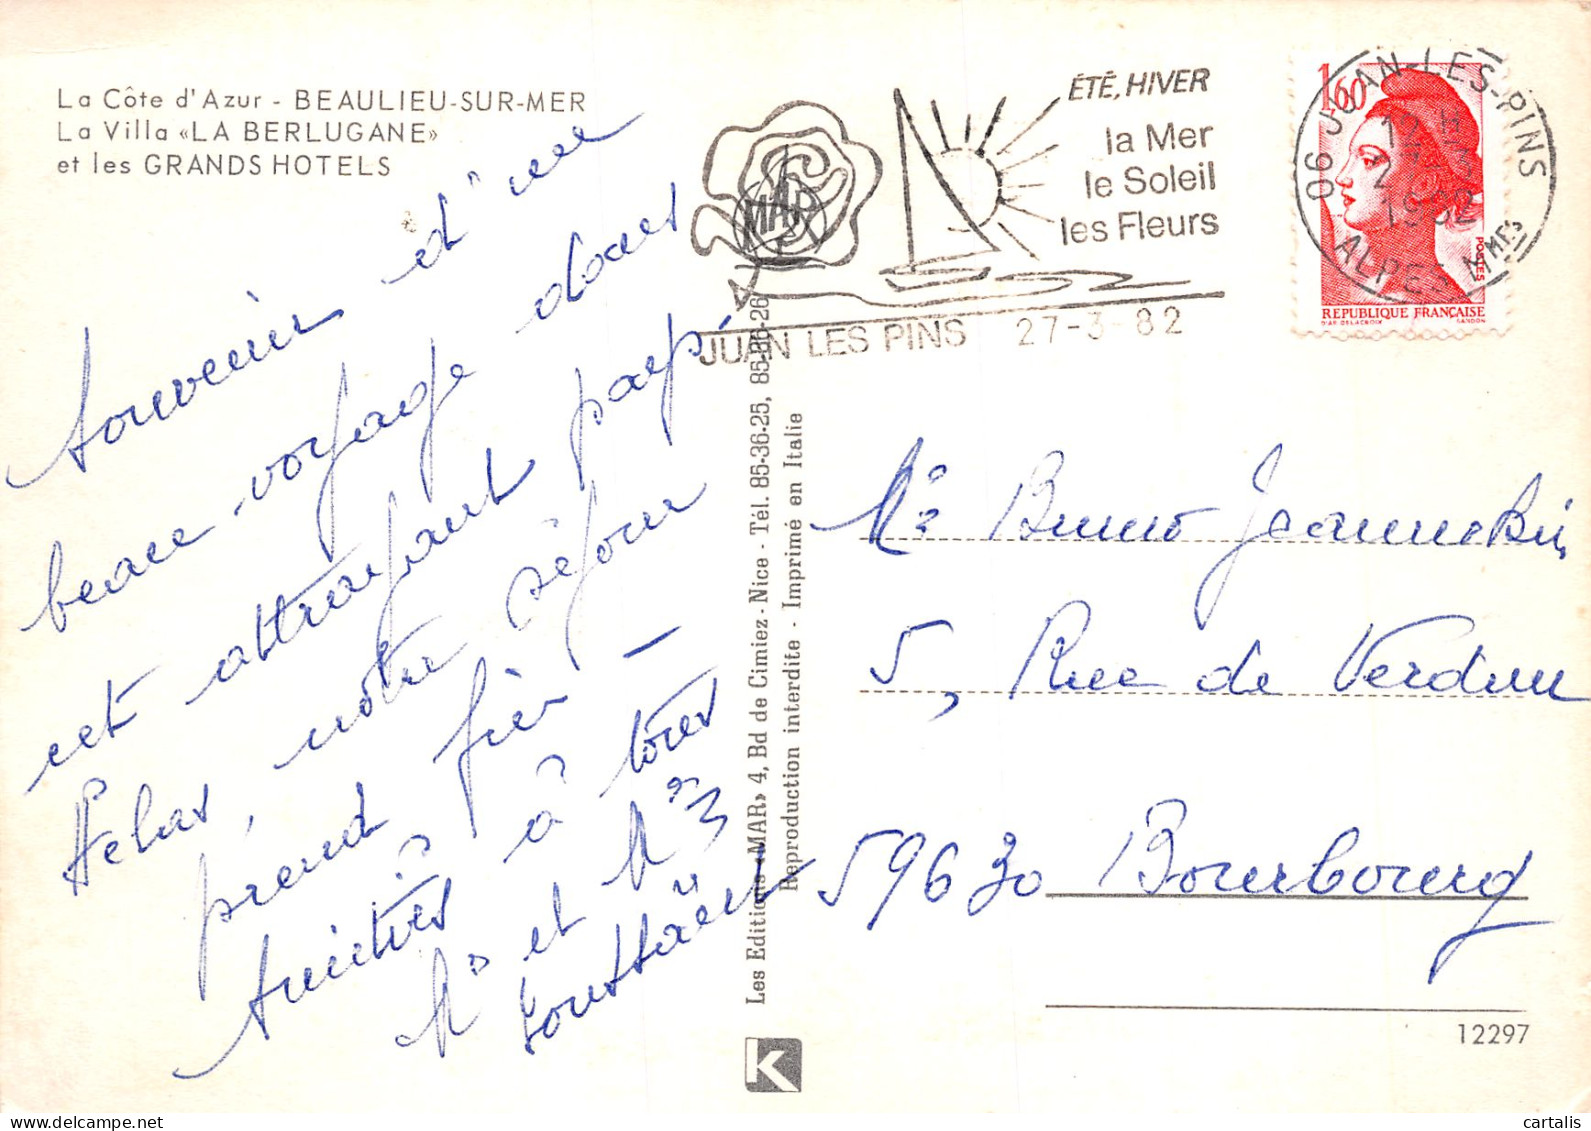 La Côte d'Azur - BEAULIEU-SUR-MER
La Villa «LA BERLUGANE»
et les GRANDS HOTELS
Souvenir d'un
beau voyage dans
cet attrayant pays
Hélas, notre séjour
prend fin –
Amitiés à tous
Mr et Mme
ÉTÉ, HIVER
la Mer
le Soleil
les Fleurs
MAR
JUAN LES PINS 27-3-82
1,60
POSTES
RÉPUBLIQUE FRANÇAISE
D'AP. DELACROIX GANDON
06 JUAN-LES-PINS
1982
ALPES MMES
Les Editions «MAR» 4, Bd de Cimiez - Nice - Tél. 85-36-25, 85-36-26
Reproduction interdite - Imprimé en Italie
Mr Bruno Jeannekin
5, Rue de Verdun
59630 Bourbourg
12297
K